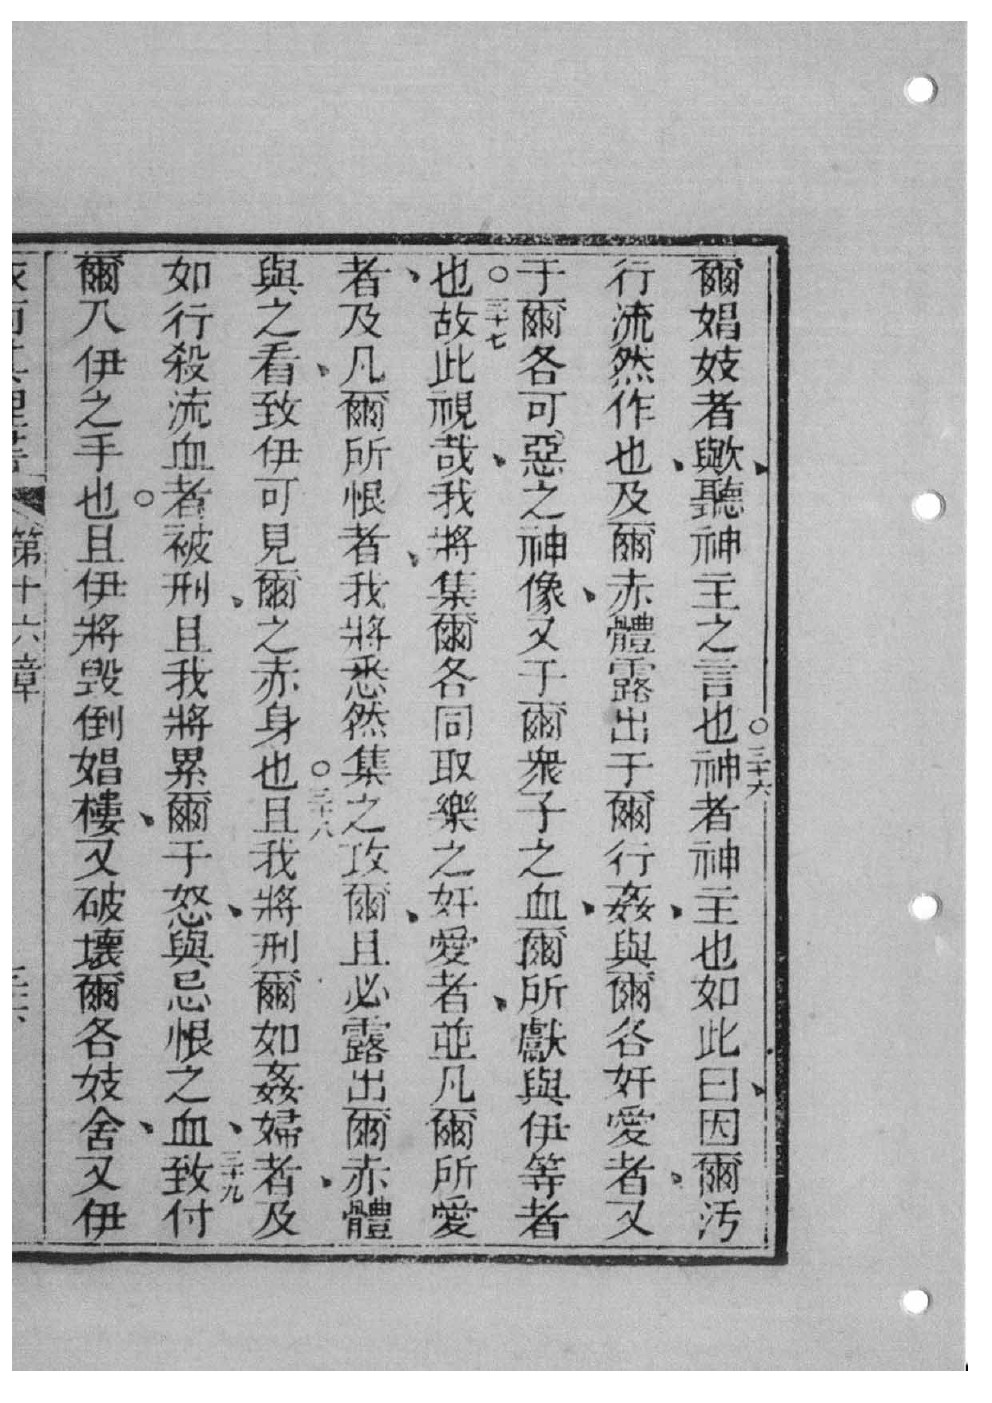 爾娼妓者歟聽神主之言也○三十六神者神主也如此曰因爾汚
行流然作也及爾赤體露出于爾行姦與爾各奸愛者又
于爾各可惡之神像又于爾衆子之血爾所獻與伊等者
○三十七也故此視哉我將集爾各同取樂之奸愛者並凡爾所愛
者及凡爾所恨者我將悉然集之攻爾且必露出爾赤體
與之看致伊可見爾之赤身也○三十八且我將刑爾如姦婦者及
如行殺流血者被刑且我將累爾于怒與忌恨之血三十九致付
爾入伊之手也○且伊將毀倒娼樓又破壞爾各妓舍又伊
第十六章